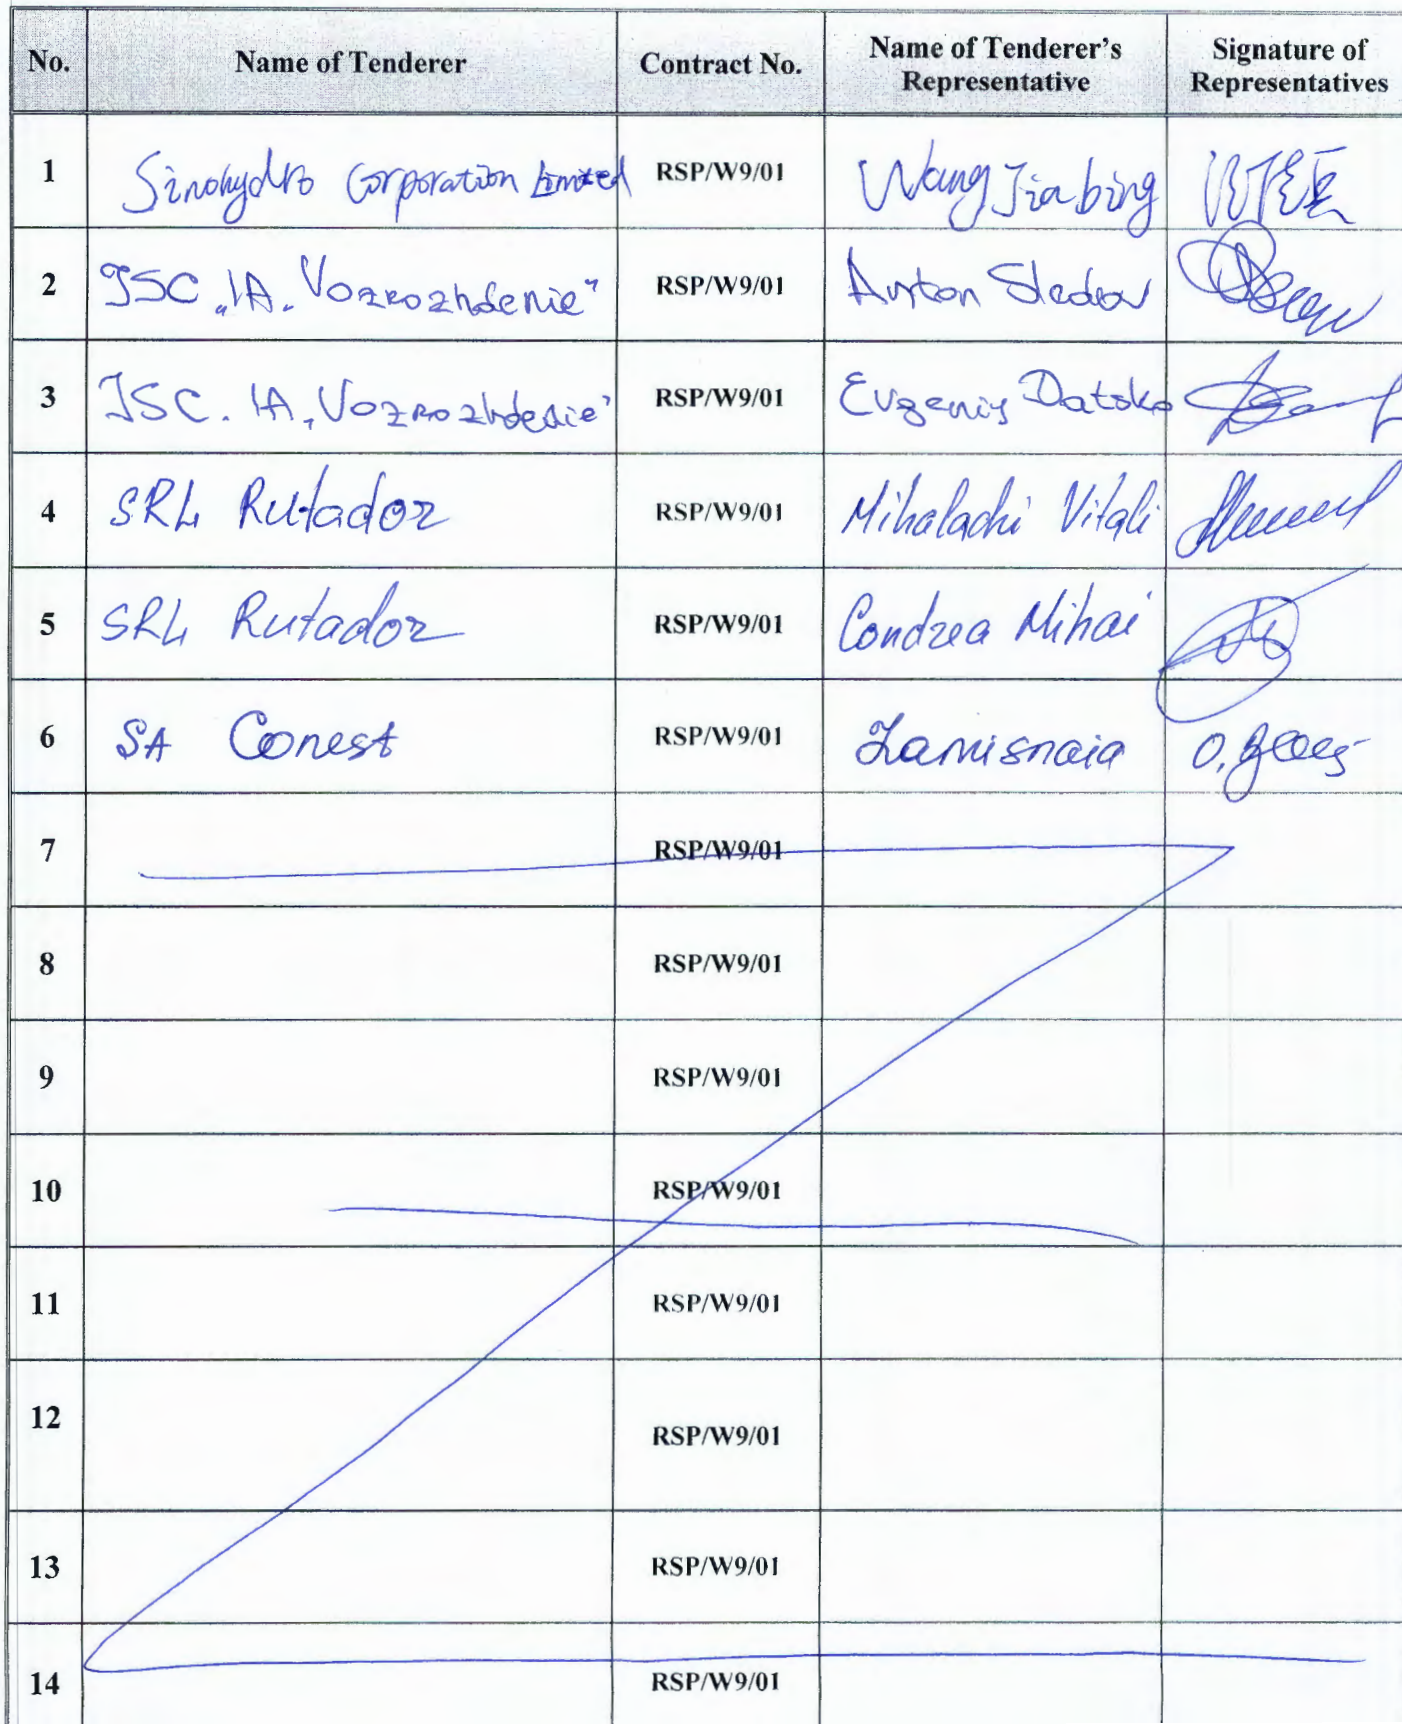 No. Name of Tenderer Contract No. Name of Tenderer's Representative Signature of Representatives
1 Sinohydro Corporation Limited RSP/W9/01 Wang Jiabing
2 JSC „IA. Vozrozhdenie" RSP/W9/01 Anton Sledov
3 JSC. IA „Vozrozhdenie" RSP/W9/01 Evgeniy Datsko
4 SRL Rutador RSP/W9/01 Mihalachi Vitali
5 SRL Rutador RSP/W9/01 Condrea Mihai
6 SA Conest RSP/W9/01 Zamisnaia
7 RSP/W9/01
8 RSP/W9/01
9 RSP/W9/01
10 RSP/W9/01
11 RSP/W9/01
12 RSP/W9/01
13 RSP/W9/01
14 RSP/W9/01